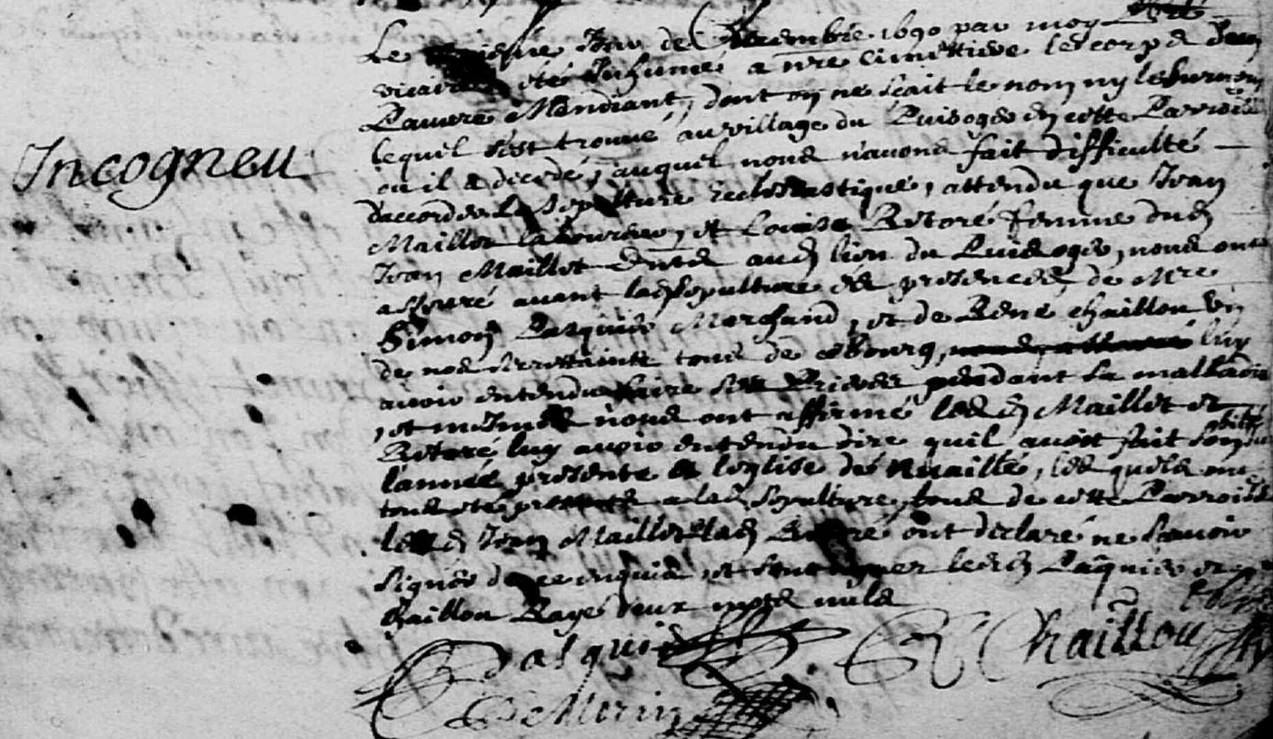 Incogneu
Le jour de Decembre 1690 par moy
vicaire a eté Inhumé a nre cimettiere le corps d'un
Pauvre Mendiant, dont on ne scait le nom ny le surnom
lequel s'est trouvé au village du Puisoges en cette Parroisse
ou il a décédé, auquel nous n'avons fait difficulté
d'accorder la sepulture Ecclesiastique, attendu que Jean
Maillot laboureur, et Louise Retoré femme dud
Jean Maillot audt lieu du Puisoges, nous ont
assuré avant lad sepulture es presences de Mre
Simon Pasquier Marchand, et de René Chaillou
de nos tous de ce bourg, luy
avoir entendu faire ses Prieres pendant sa malladie
, et mesmes nous ont affirmé lesd Maillot et
Retoré luy avoir entendu dire quil avoit fait son
l'année presente a l'eglise de Nuaillé, lesquels ont
tous eté a lad sepulture, tous de cette Parroisse
lesd Jean Maillot et lad Retoré ont declaré ne scavoir
signer de ce enquis, et lesd Paquier et
Chaillou Rayé deux mots nuls
Pasquier R Chaillou
Morin